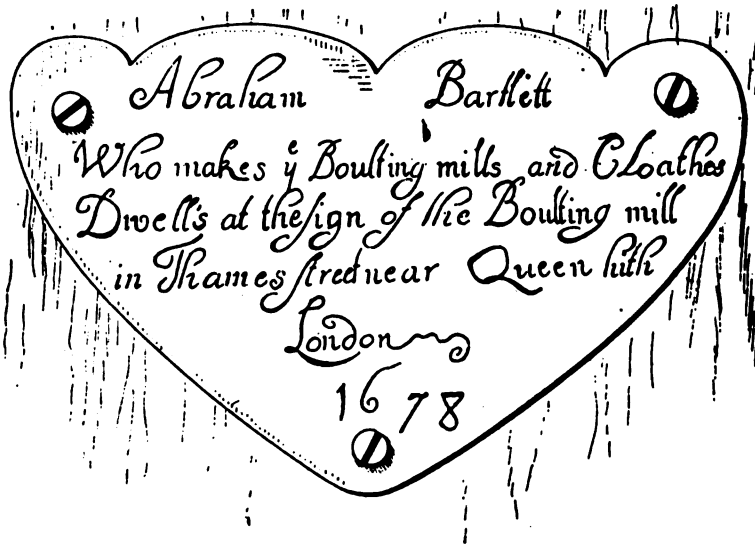 Abraham Bartlett
Who makes yͤ Boulting mills and Cloathes
Dwells at the ſign of the Boulting mill
in Thames ſtreet near Queen hith
London
1678